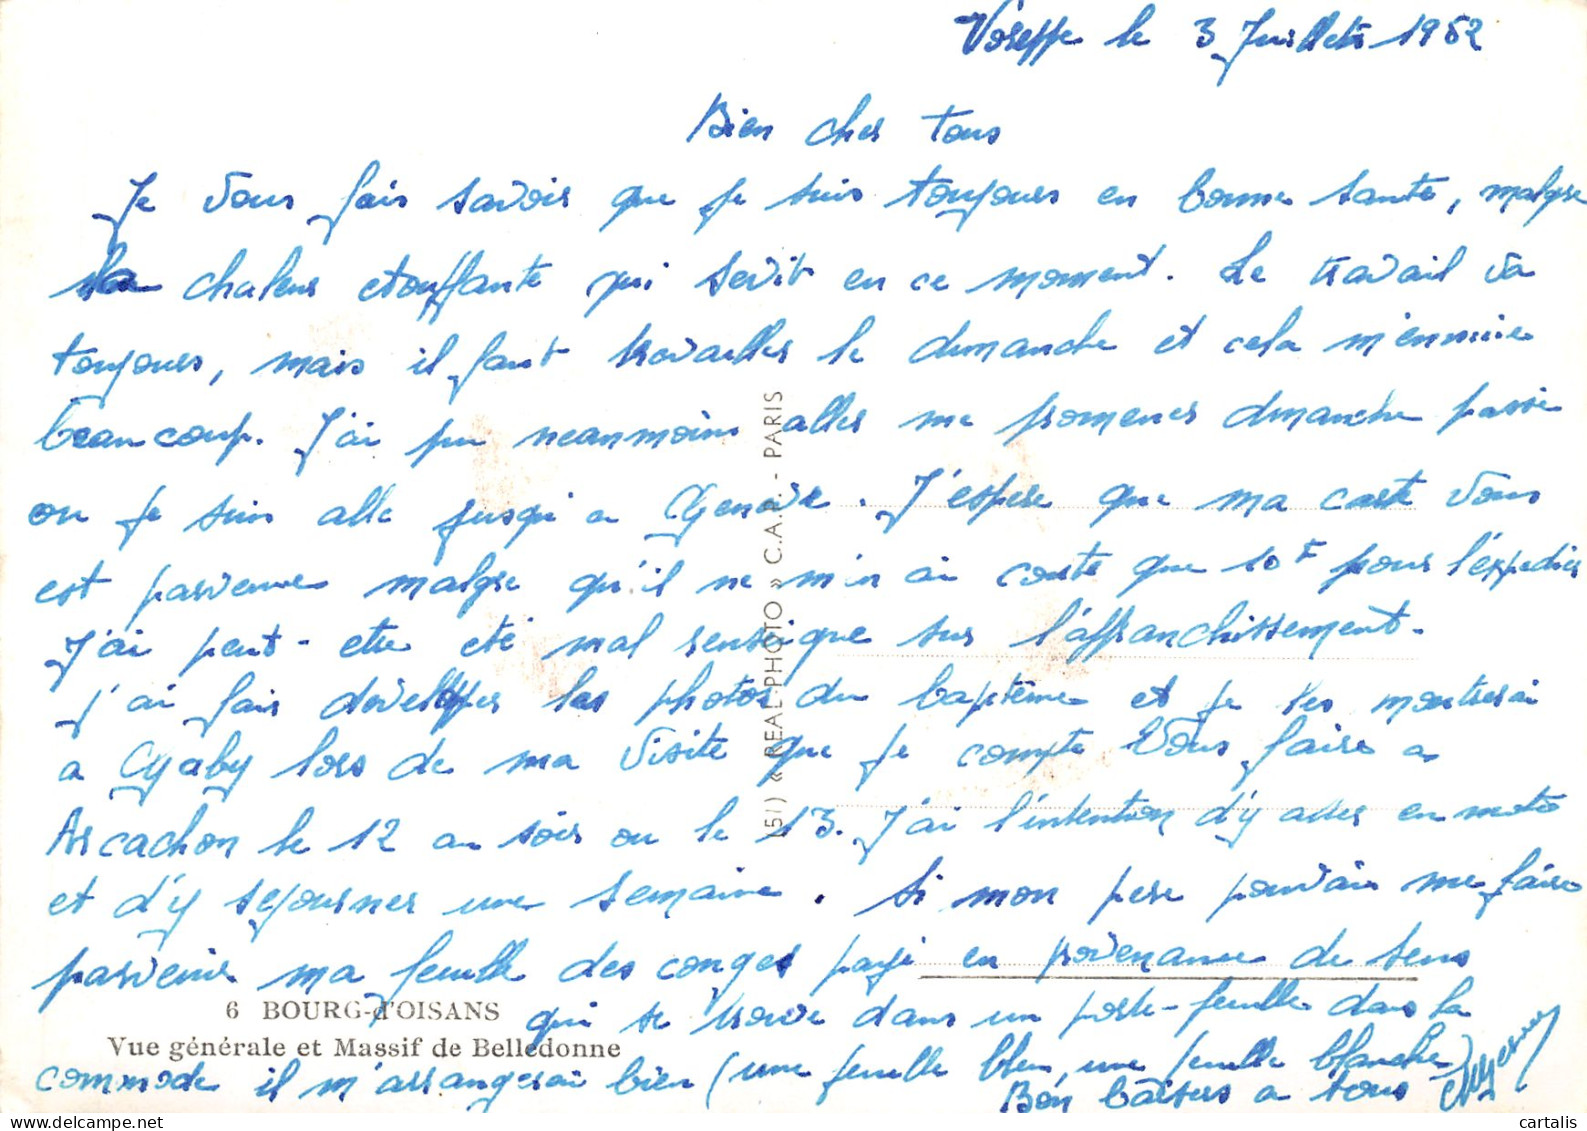 Voreppe le 3 Juillets 1952
Bien cher tous
Je vous fais savoir que je suis toujours en bonne sante, malgre
la chaleur etouffante qui sevit en ce moment. Le travail va
toujours, mais il faut travailler le dimanche et cela m'ennuie
beaucoup. J'ai pu neanmoins aller me promener dimanche passe
ou je suis alle jusqu'a Geneve. J'espere que ma carte vous
est parvenue malgre qu'il ne m'en ai coute que 10 F pour l'expedier
J'ai peut-etre été mal renseigne sur l'affranchissement.
j'ai fais developper les photos du baptême et je les montrerai
a Gaby lors de ma visite que je compte vous faire a
Arcachon le 12 au soir ou le 13. J'ai l'intention d'y aller en moto
et d'y sejourner une semaine. Si mon pere pouvais me faire
parvenir ma feuille des conges paye en provenance de Sens
qui se trouve dans un porte-feuille dans la
commode il m'arrangerai bien (une feuille bleu, une feuille blanche)
Bon baisers a tous
6 BOURG-d'OISANS
Vue générale et Massif de Belledonne
(51) « REAL-PHOTO » C.A.P. - PARIS
cartalis